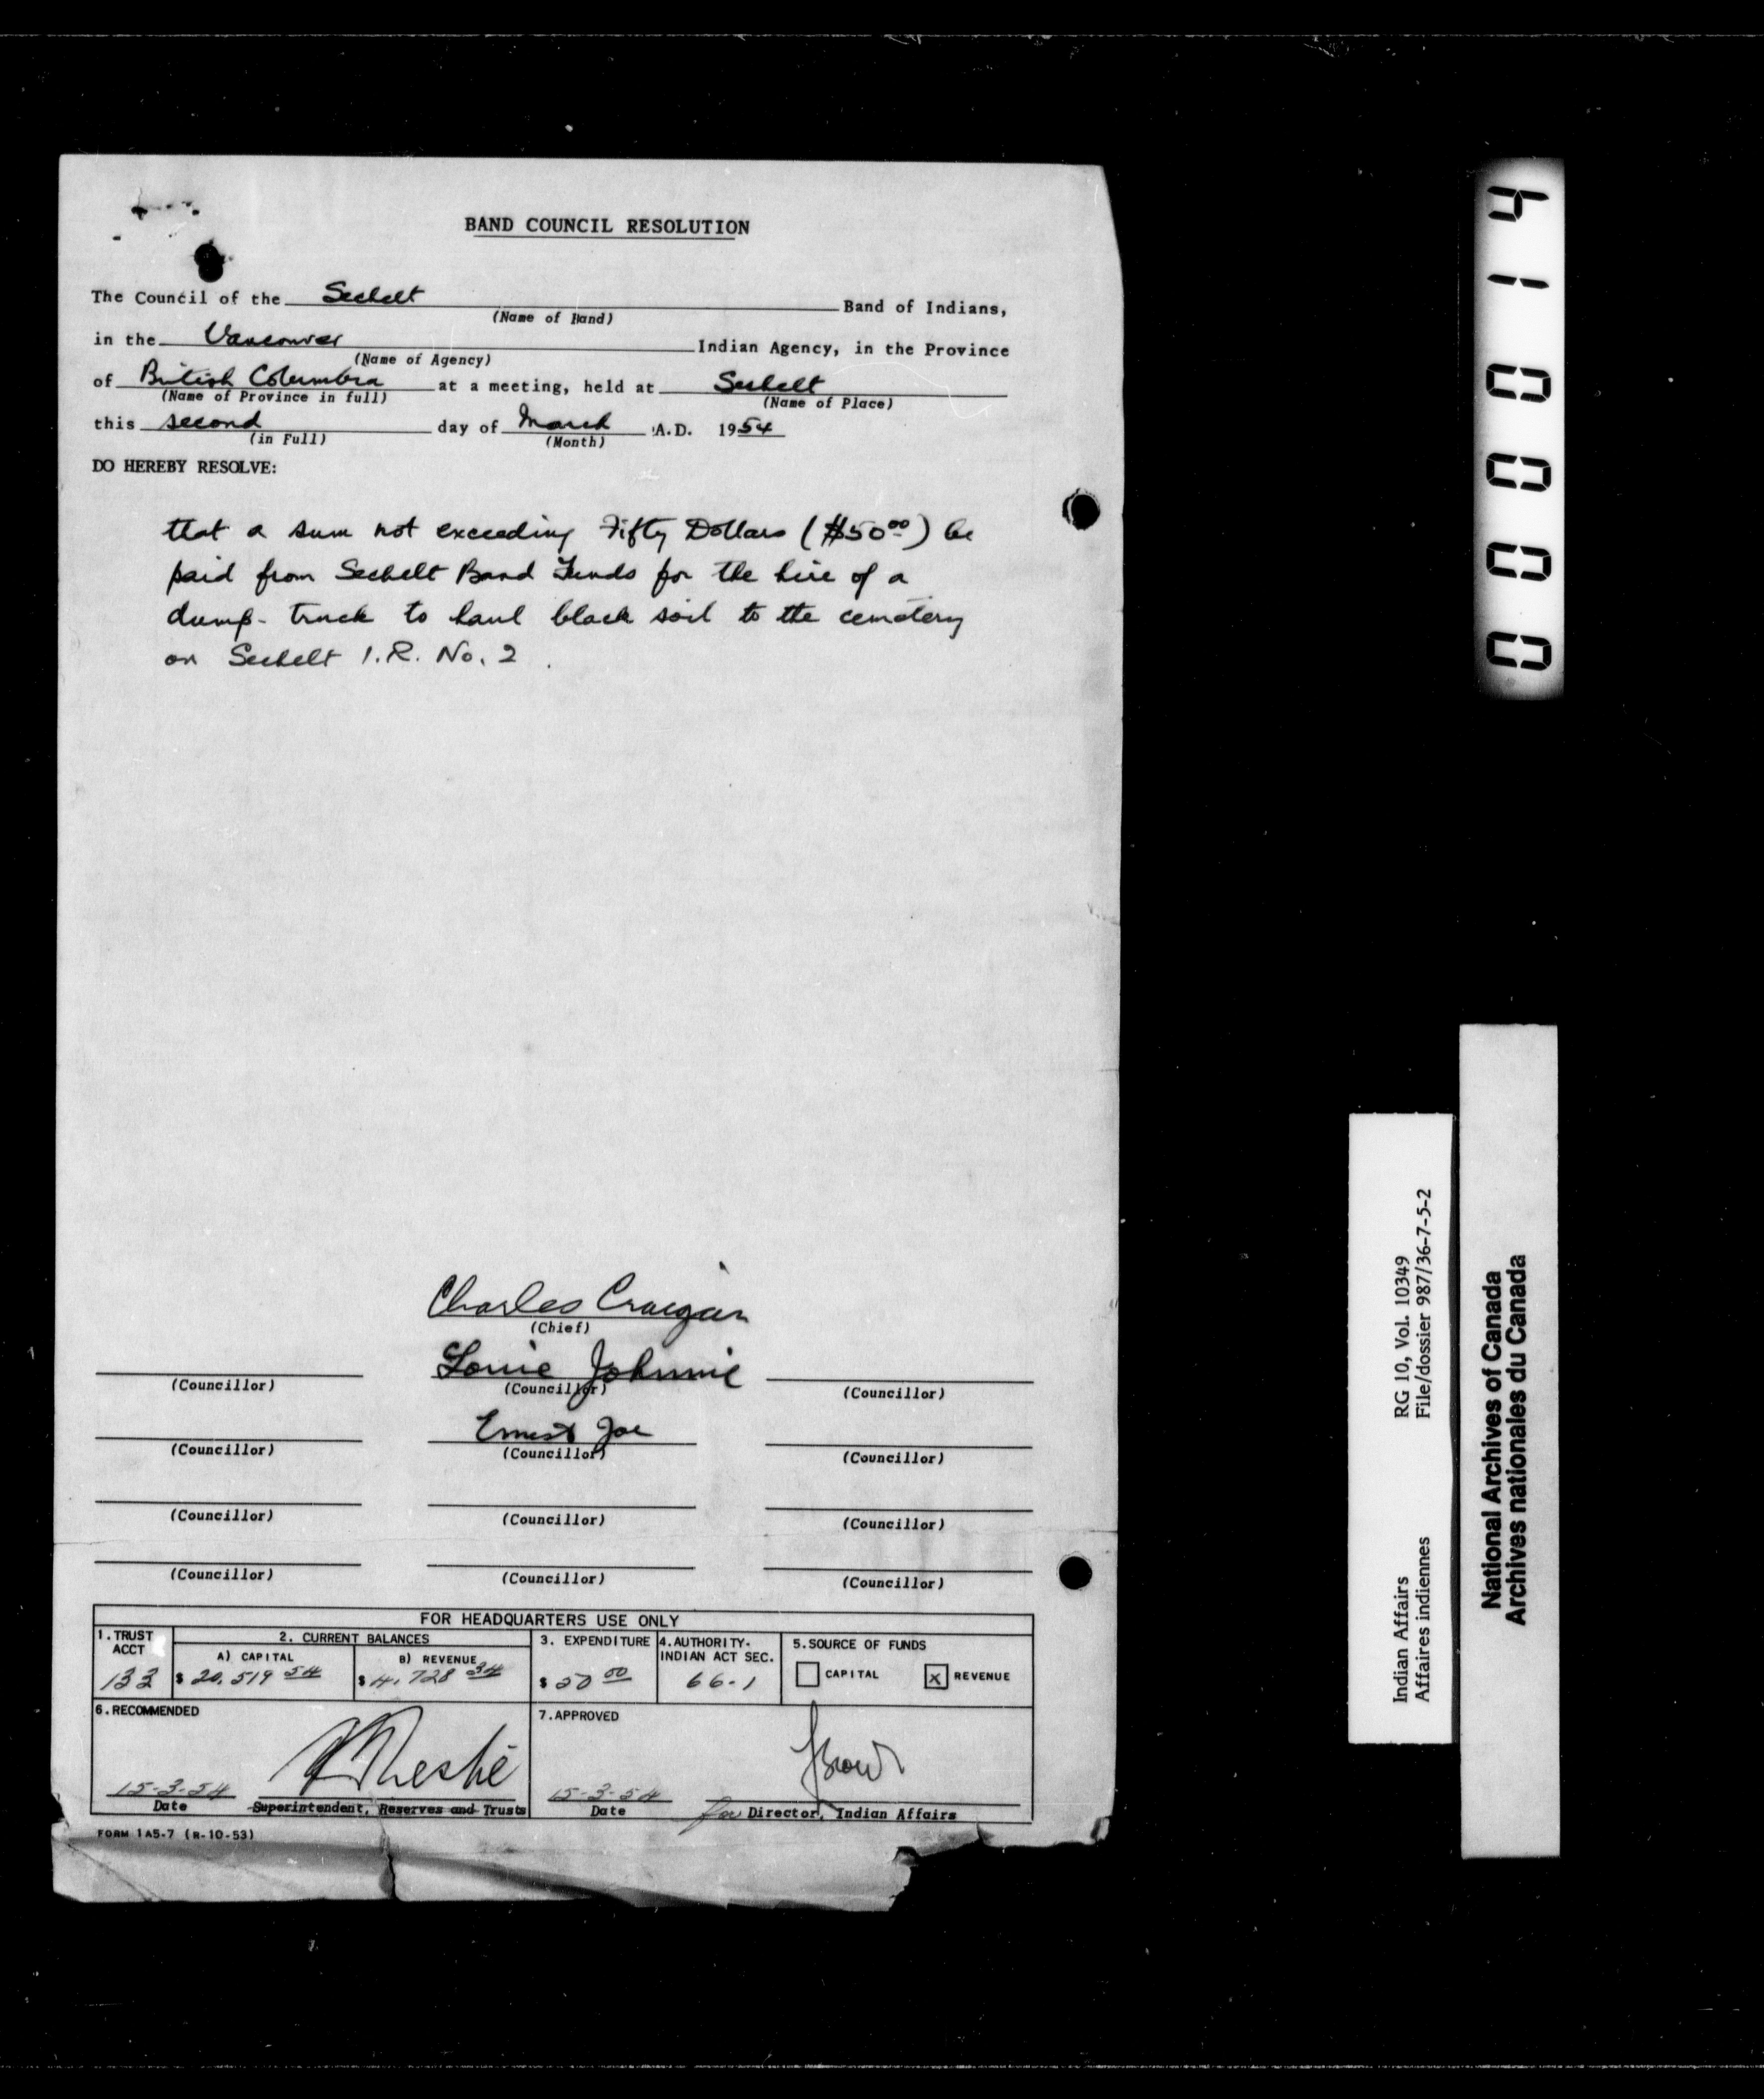 BAND COUNCIL RESOLUTION
The Council of the Sechelt Band of Indians,
(Name of Band)
in the Vancouver Indian Agency, in the Province
(Name of Agency)
of British Columbia at a meeting, held at Sechelt
(Name of Province in full) (Name of Place)
this second day of March A.D. 1954
(in Full) (Month)
DO HEREBY RESOLVE:
that a sum not exceeding Fifty Dollars ($50.00) be
paid from Sechelt Band Funds for the hire of a
dump-truck to haul black soil to the cemetery
on Sechelt I.R. No. 2.
Charles Craigan
(Chief)
Louie Johnnie
(Councillor) (Councillor) (Councillor)
Ernest Joe
(Councillor) (Councillor) (Councillor)
(Councillor) (Councillor) (Councillor)
(Councillor) (Councillor) (Councillor)
FOR HEADQUARTERS USE ONLY
1. TRUST ACCT
133
2. CURRENT BALANCES
A) CAPITAL
$ 20,519 54
B) REVENUE
$ 4,728 34
3. EXPENDITURE
$ 50 00
4. AUTHORITY-
INDIAN ACT SEC.
66-1
5. SOURCE OF FUNDS
CAPITAL
x REVENUE
6. RECOMMENDED
15-3-54
Date Superintendent, Reserves and Trusts
7. APPROVED
15-3-54
Date for Director, Indian Affairs
FORM 1A5-7 (R-10-53)
000014
Indian Affairs RG 10, Vol. 10349
Affaires indiennes File/dossier 987/36-7-5-2
National Archives of Canada
Archives nationales du Canada